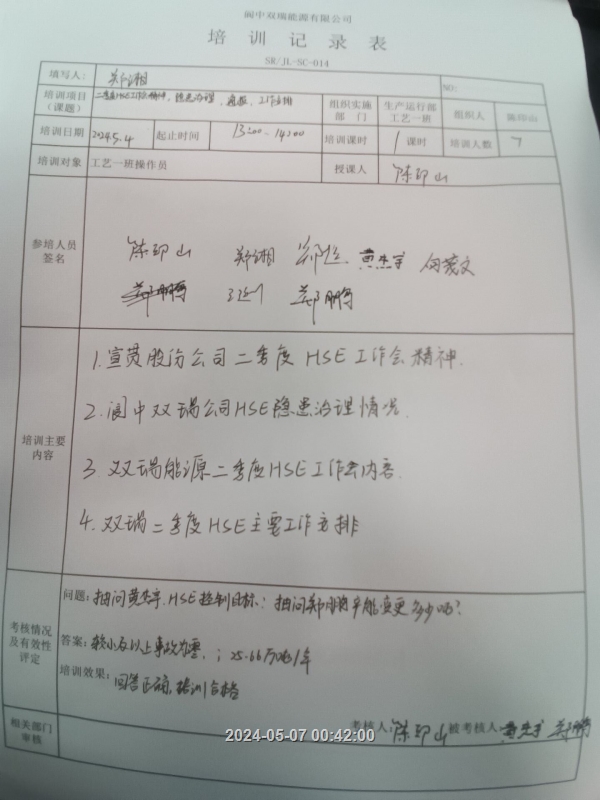 阆中双瑞能源有限公司
培训记录表
SR/JL-SC-014
填写人: 郑湘 NO:
培训项目(课题) 二季度HSE工作会精神、隐患治理、通报、工作安排 组织实施部门 生产运行部工艺一班 组织人 陈印山
培训日期 2024.5.4 起止时间 13:00-14:00 培训课时 1课时 培训人数 7
培训对象 工艺一班操作员 授课人 陈印山
参培人员签名
陈印山 郑湘 黄杰宇
郑鹏
培训主要内容
1.宣贯股份公司二季度HSE工作会精神.
2.阆中双瑞公司HSE隐患治理情况.
3.双瑞能源二季度HSE工作会内容.
4.双瑞二季度HSE主要工作安排
考核情况及有效性评定
问题: 抽问黄杰宇.HSE控制目标; 抽问郑鹏产能变更多少吨?
答案: 较小及以上事故为零.; 25.66万吨/年
培训效果: 回答正确,培训合格
考核人: 陈印山 被考核人 黄杰宇 郑鹏
相关部门审核
2024-05-07 00:42:00